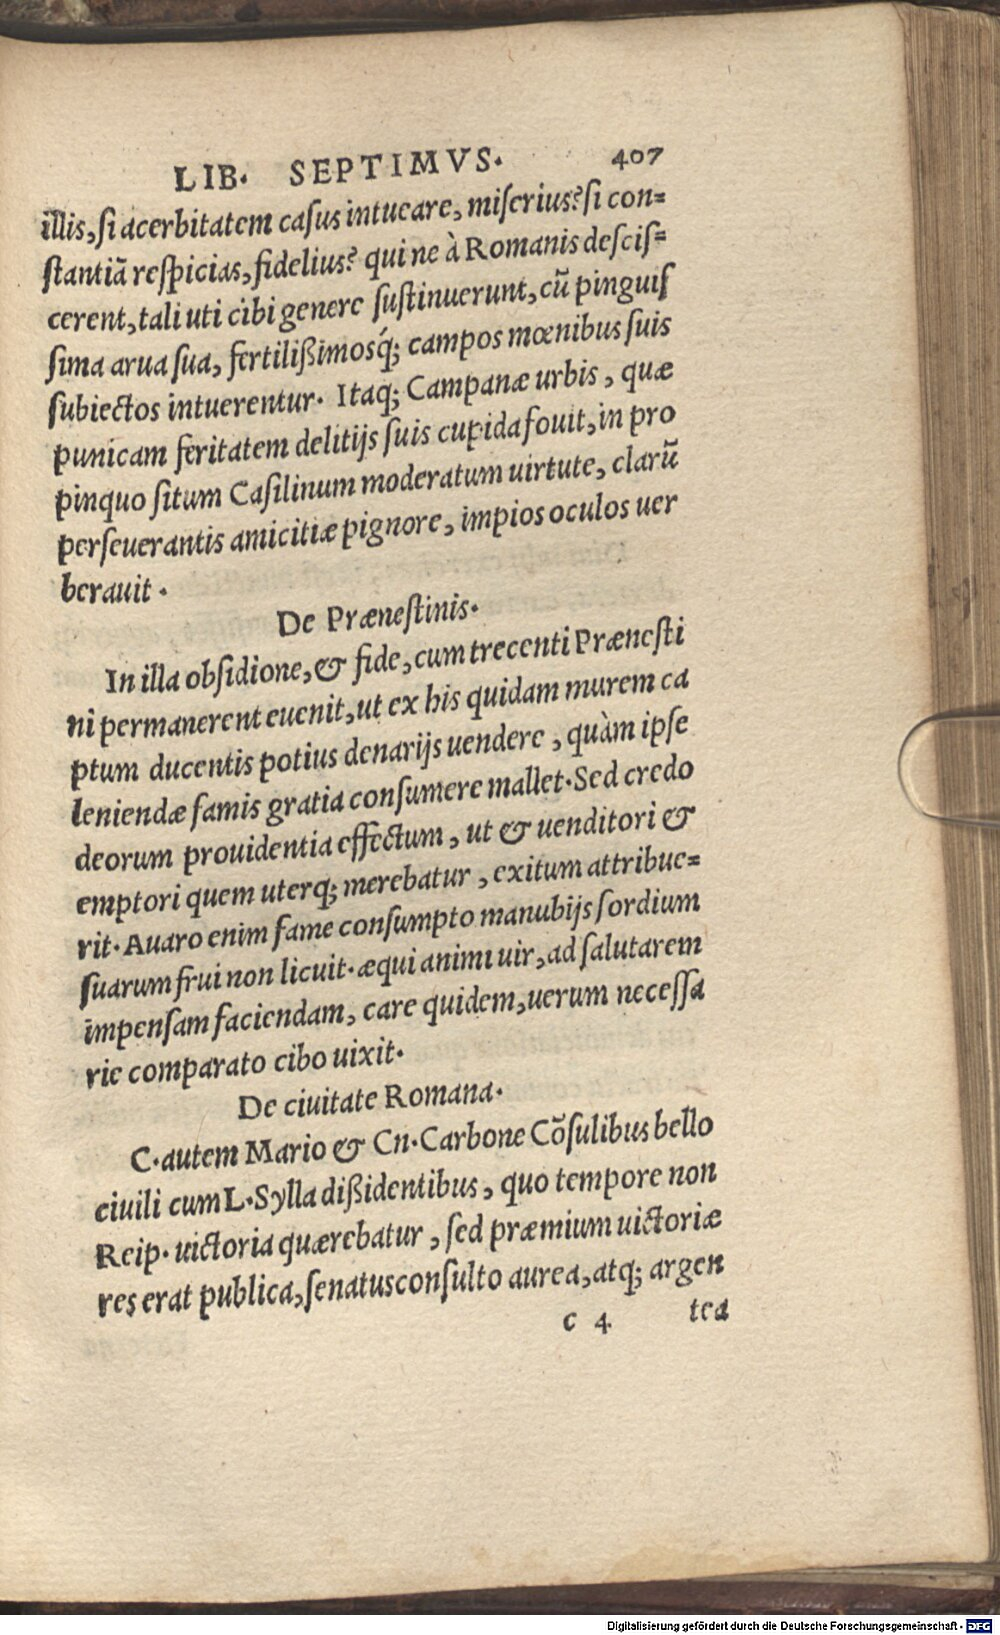 LIB. SEPTIMVS. 407
illis, si acerbitatem casus intueare, miserius? si con=
stantiã respicias, fidelius? qui ne à Romanis descis=
cerent, tali uti cibi genere sustinuerunt, cũ pinguis
sima arua sua, fertilißimosq́; campos mœnibus suis
subiectos intuerentur. Itaq; Campanæ urbis, quæ
punicam feritatem delitijs suis cupida fouit, in pro
pinquo situm Casilinum moderatum uirtute, clarũ
perseuerantis amicitiæ pignore, impios oculos uer
berauit.
De Prænestinis.
In illa obsidione, & fide, cum trecenti Prænesti
ni permanerent euenit, ut ex his quidam murem ca
ptum ducentis potius denarijs uendere, quàm ipse
leniendæ famis gratia consumere mallet. Sed credo
deorum prouidentia effectum, ut & uenditori &
emptori quem uterq; merebatur, exitum attribue=
rit. Auaro enim fame consumpto manubijs sordium
suarum frui non licuit. æqui animi uir, ad salutarem
impensam faciendam, care quidem, uerum necessa
rie comparato cibo uixit.
De ciuitate Romana.
C. autem Mario & Cn. Carbone Cõsulibus bello
ciuili cum L. Sylla dißidentibus, quo tempore non
Reip. uictoria quærebatur, sed præmium uictoriæ
res erat publica, senatusconsulto aurea, atq; argen
c 4 tea
Digitalisierung gefördert durch die Deutsche Forschungsgemeinschaft - DFG